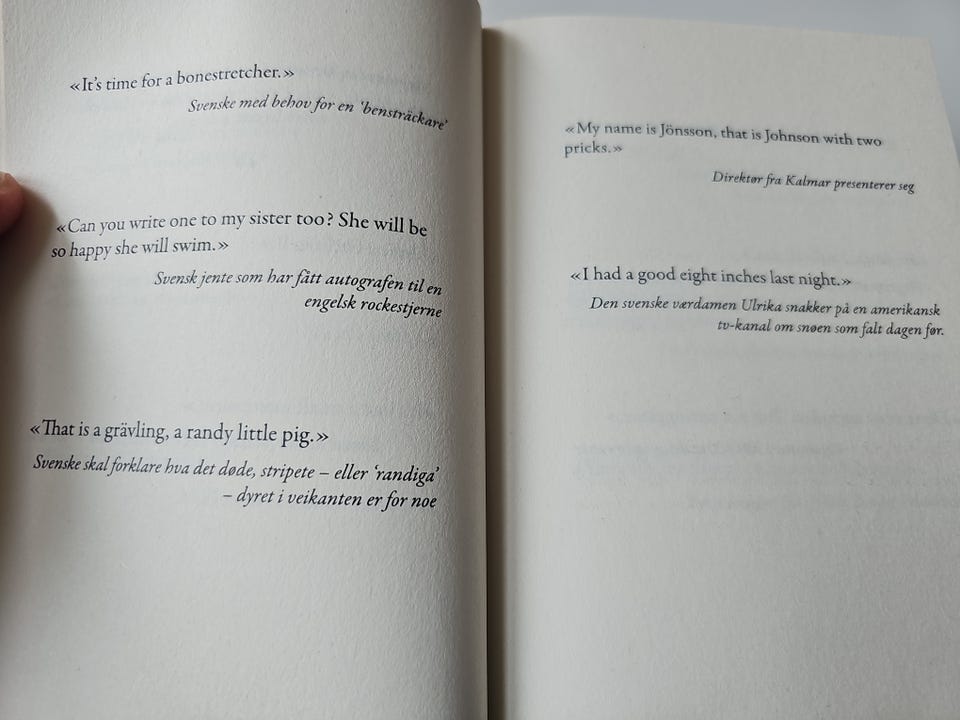 «It's time for a bonestretcher.»
Svenske med behov for en 'bensträckare'
«Can you write one to my sister too? She will be
so happy she will swim.»
Svensk jente som har fått autografen til en
engelsk rockestjerne
«That is a grävling, a randy little pig.»
Svenske skal forklare hva det døde, stripete – eller 'randiga'
– dyret i veikanten er for noe
«My name is Jönsson, that is Johnson with two
pricks.»
Direktør fra Kalmar presenterer seg
«I had a good eight inches last night.»
Den svenske værdamen Ulrika snakker på en amerikansk
tv-kanal om snøen som falt dagen før.